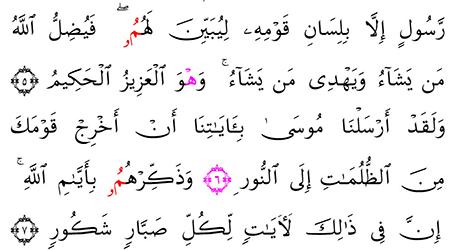 رَّسُولٍ إِلَّا بِلِسَانِ قَوْمِهِۦ لِيُبَيِّنَ لَهُمُۥ ۖ فَيُضِلُّ اَ۬للَّهُ
مَن يَشَآءُ وَيَهْدِي مَن يَشَآءُ ۚ وَهْوَ اَ۬لْعَزِيزُ اُ۬لْحَكِيمُ ۝٥
وَلَقَدْ أَرْسَلْنَا مُوسَىٰ بِـَٔايَٰتِنَا أَنْ أَخْرِجْ قَوْمَكَ
مِنَ اَ۬لظُّلُمَٰتِ إِلَى اَ۬لنُّورِ ۝٦ وَذَكِّرْهُمُۥ بِأَيَّىٰمِ اِ۬للَّهِ ۚ
إِنَّ فِي ذَٰلِكَ لَأٓيَٰتٖ لِّكُلِّ صَبَّارٖ شَكُورٖ ۝٧